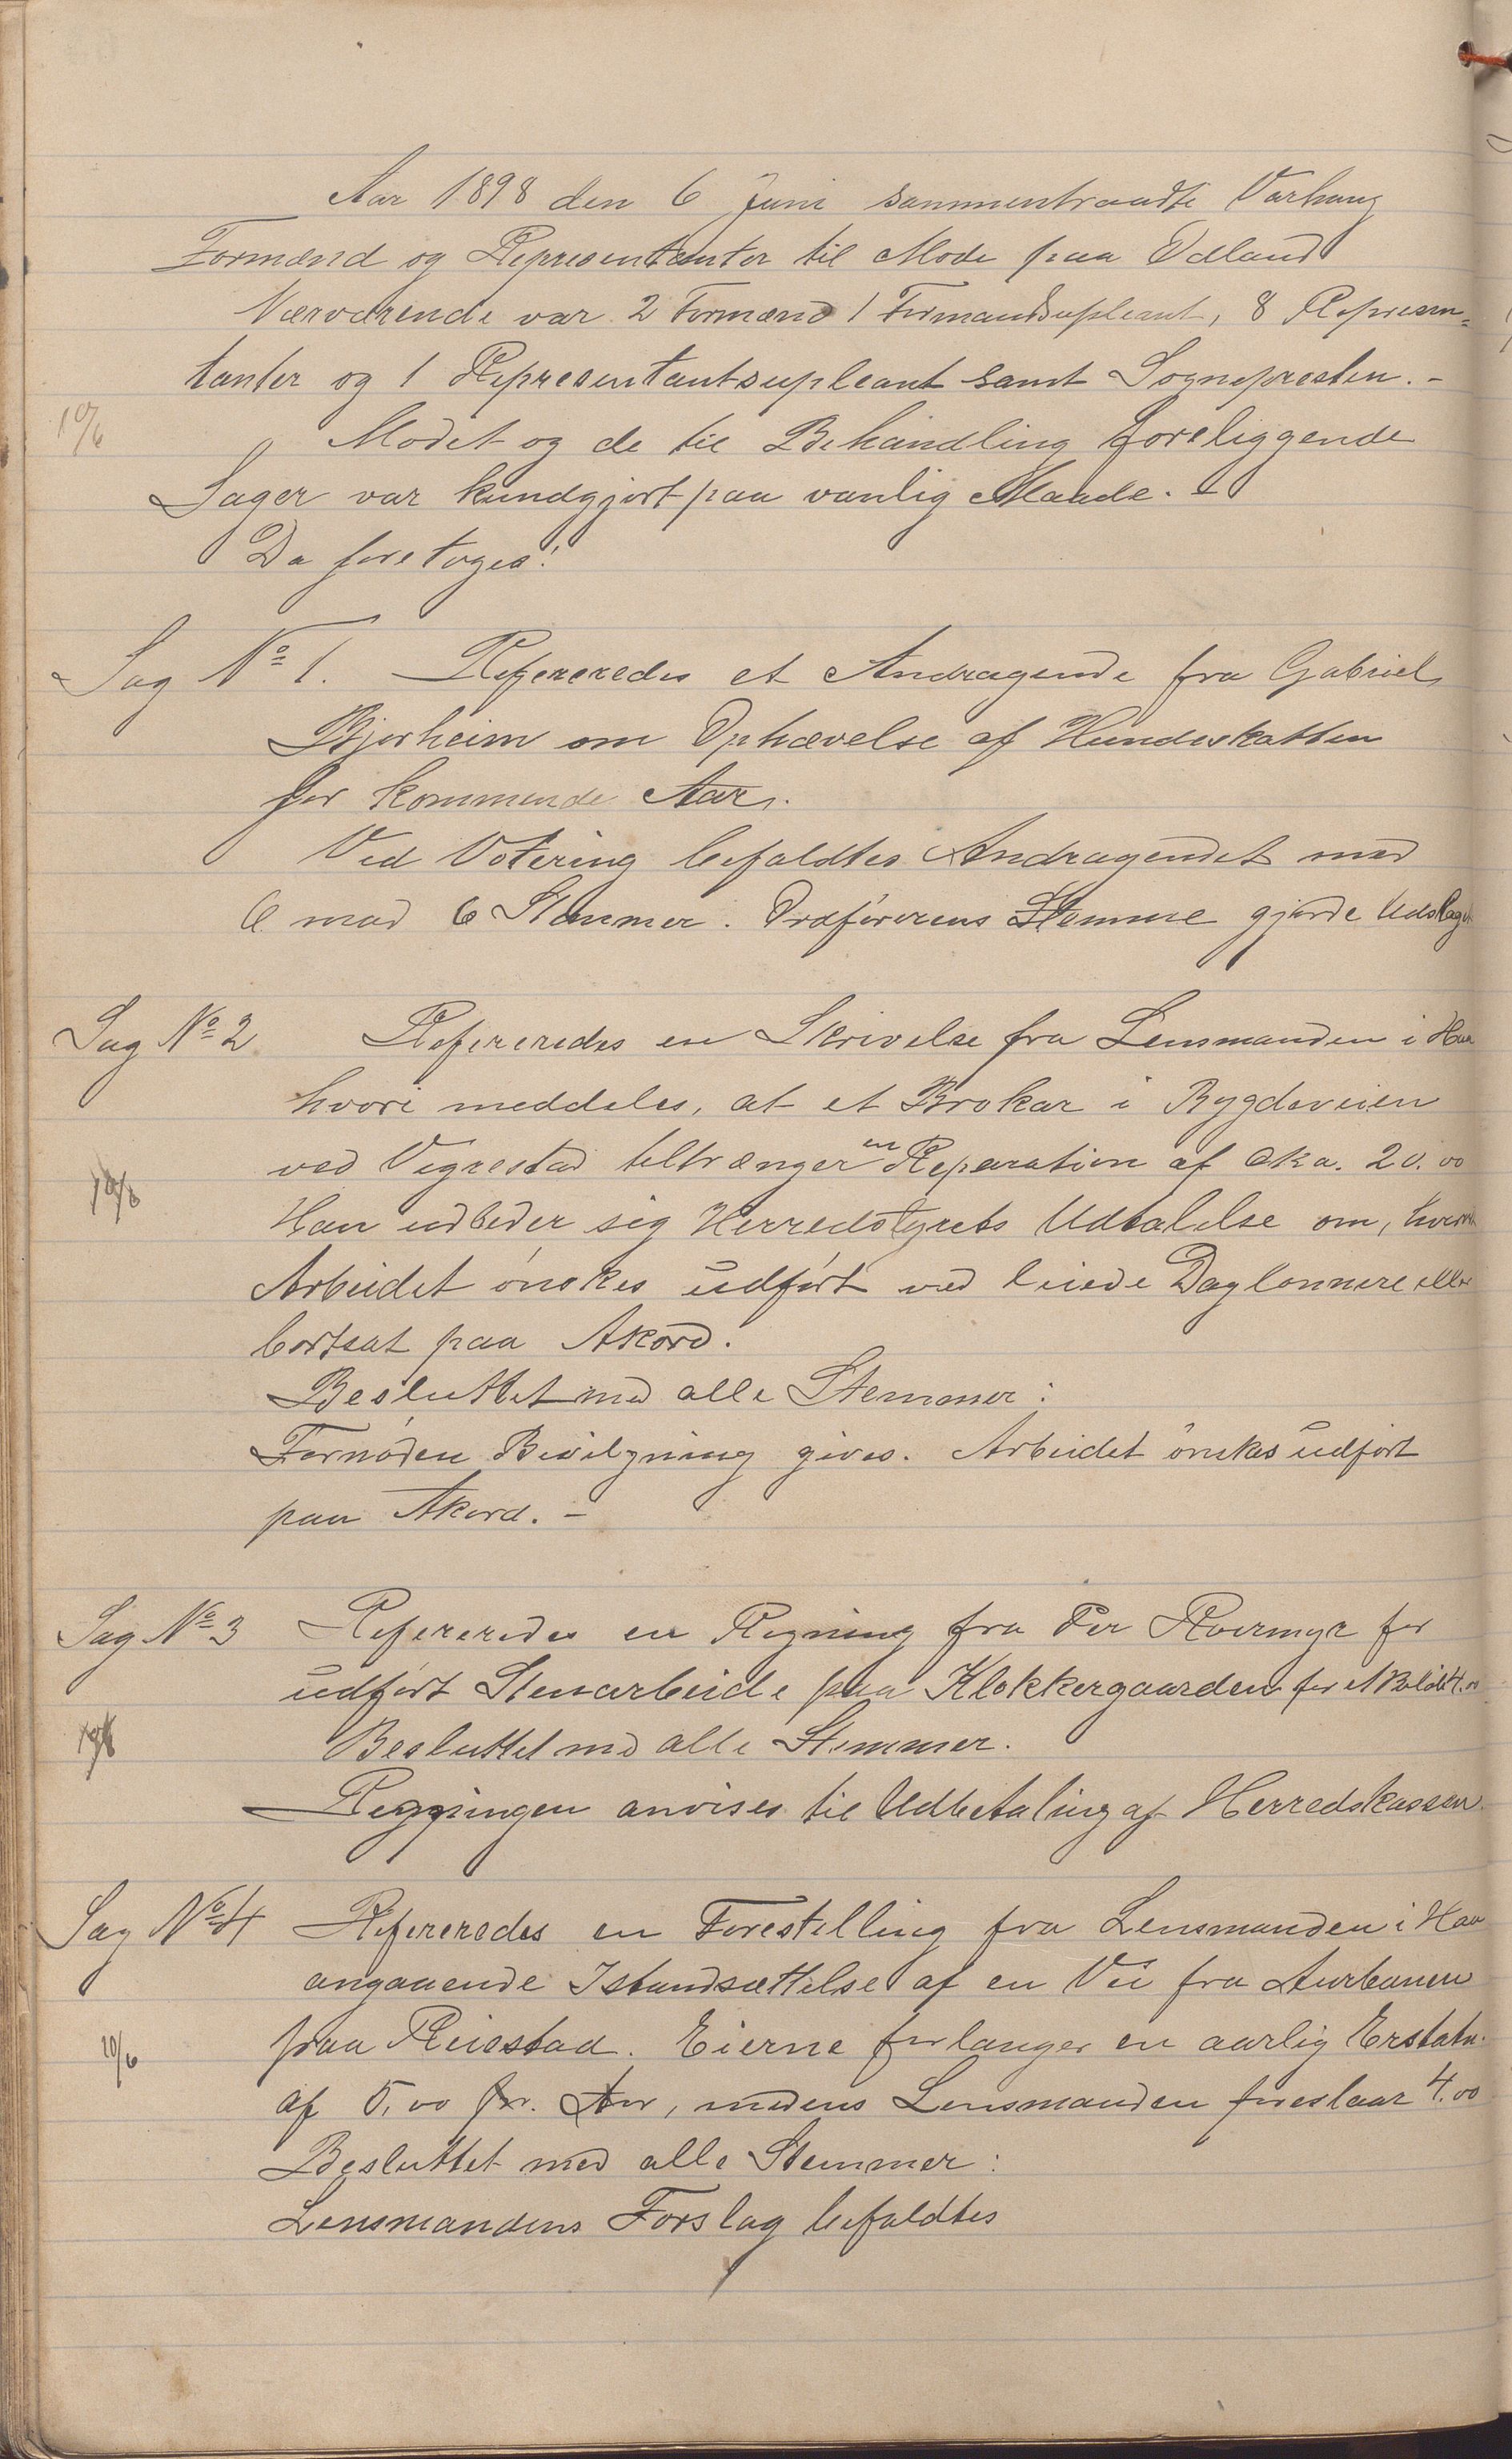 Aar 1898 den 6 Juni sammentraadte Varhaug
Formænd og Representanter til Mode paa Odland
Nærværende var 2 Formænd 1 Formandsupleant, 8 Represen=
tanter og 1 Representantsupleant samt Sognepresten. -
10/6
Modet og de til Behandling foreliggende
Sager var kundgjort paa vanlig Maade. -
Da foretoges:
Sag No 1. Refereredes et Andragende fra Gabriel
Bjorheim om Ophævelse af Hundeskatten
for kommende Aar.
Ved Votering befaldtes Andragendet med
6 mod 6 Stemmer. Ordførerens Stemme gjorde Udslaget
Sag No 2 Refereredes en Skrivelse fra Lensmanden i Haa
hvori meddeles, at et Brokar i Bygdeveien
ved Vigrestad tiltrænger en Reparation af cka. 20.00
10/6
Han udbeder sig Herredstyrets Udtalelse om, hvorvidt
Arbeidet ønskes udført ved leiede Daglonnere eller
bortsat paa Akord.
Besluttet med alle Stemmer:
Fornøden Bevilgning gives. Arbeidet ønskes udført
paa Akord. -
Sag No 3 Refereredes en Regning fra Per Roermyr for
udført Stenarbeide paa Klokkergaarden for 4.00
10/6
Besluttet med alle Stemmer.
Regningen anvises til Udbetaling af Herredskassen.
Sag No 4 Refereredes en Forestilling fra Lensmanden i Haa
angaaende Istandsættelse af en Vei fra Aurbanen
paa Reiestad. Eierne forlanger en aarlig Erstatn.
10/6
af 5,00 pr. Aar, medens Lensmanden foreslaar 4.00
Besluttet med alle Stemmer:
Lensmandens Forslag befaldtes